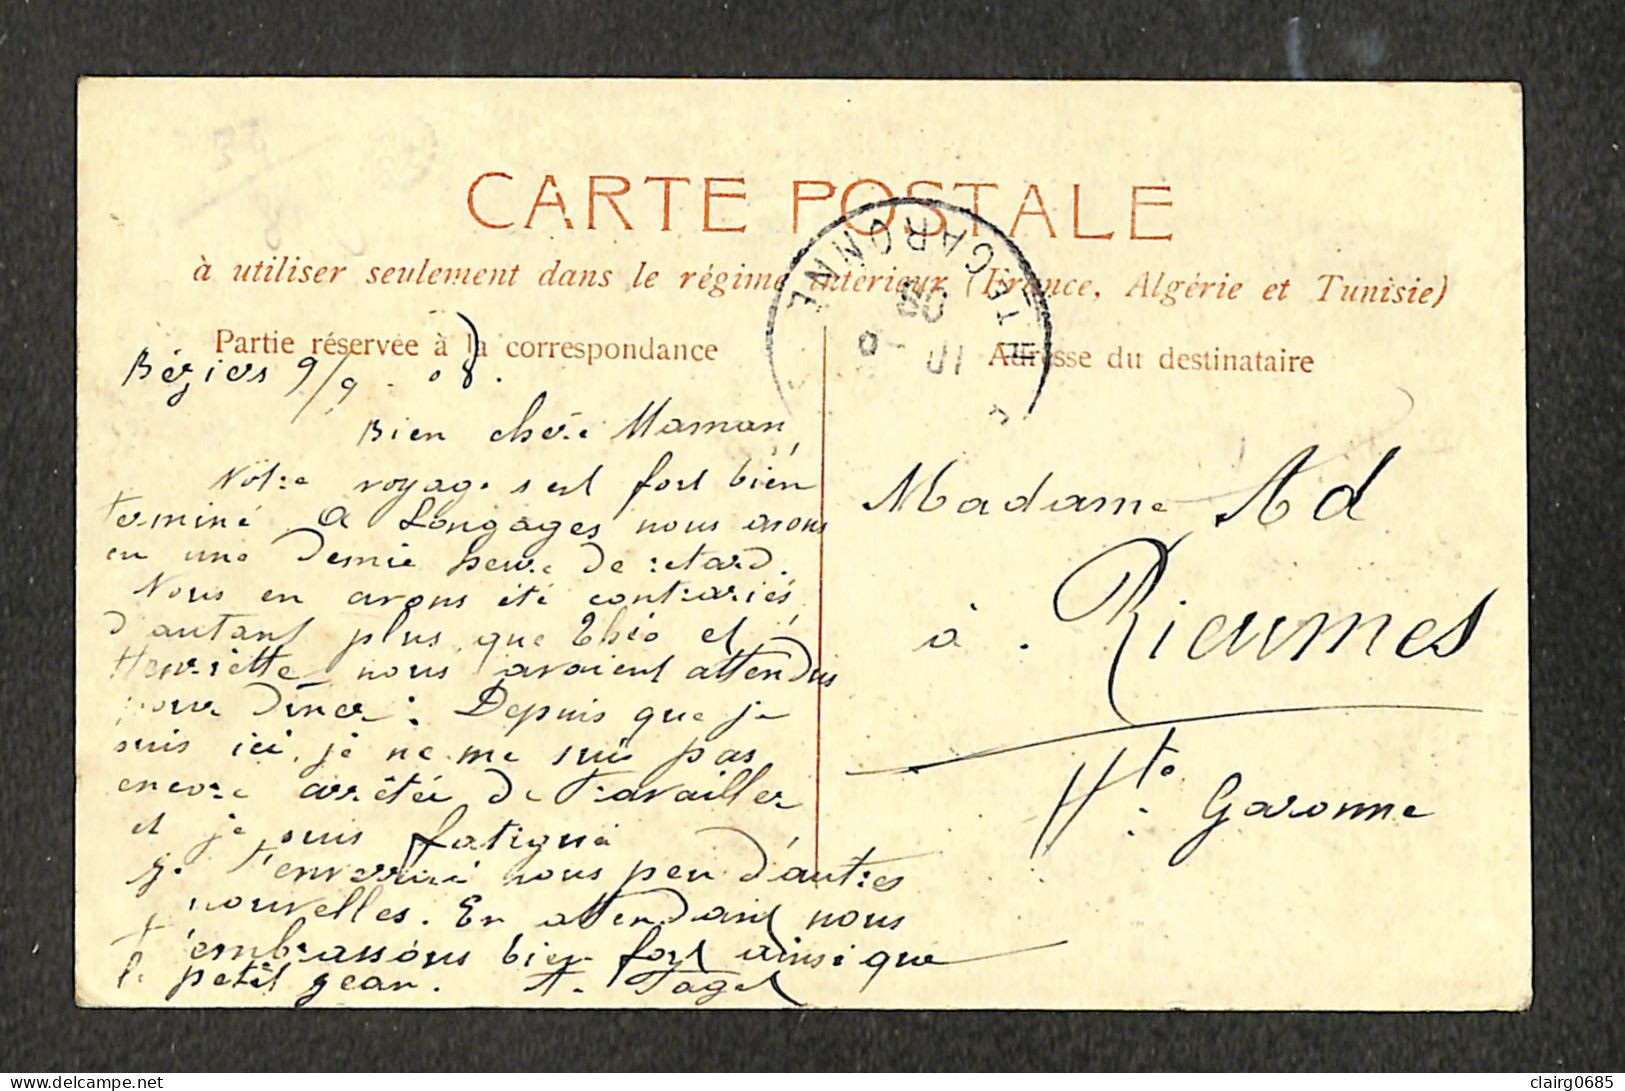 CARTE POSTALE
à utiliser seulement dans le régime intérieur (France, Algérie et Tunisie)
Partie réservée à la correspondance
Adresse du destinataire
Hte GARONNE
10
08
Béziers 9/9 - 08.
Bien chère Maman,
Notre voyage s'est fort bien
terminé. A Longages nous avons
eu une demie heure de retard.
Nous en avons été contrariés
d'autant plus que Théo et
Henriette nous avaient attendus
pour dîner. Depuis que je
suis ici, je ne me suis pas
encore arrêtée de travailler
et je suis fatiguée
Je t'enverrai sous peu d'autres
nouvelles. En attendant nous
t'embrassons bien fort ainsi que
le petit Jean. A. Pagel
Madame Ad
à Rieumes
Hte Garonne
delcampe.net
clairg0685